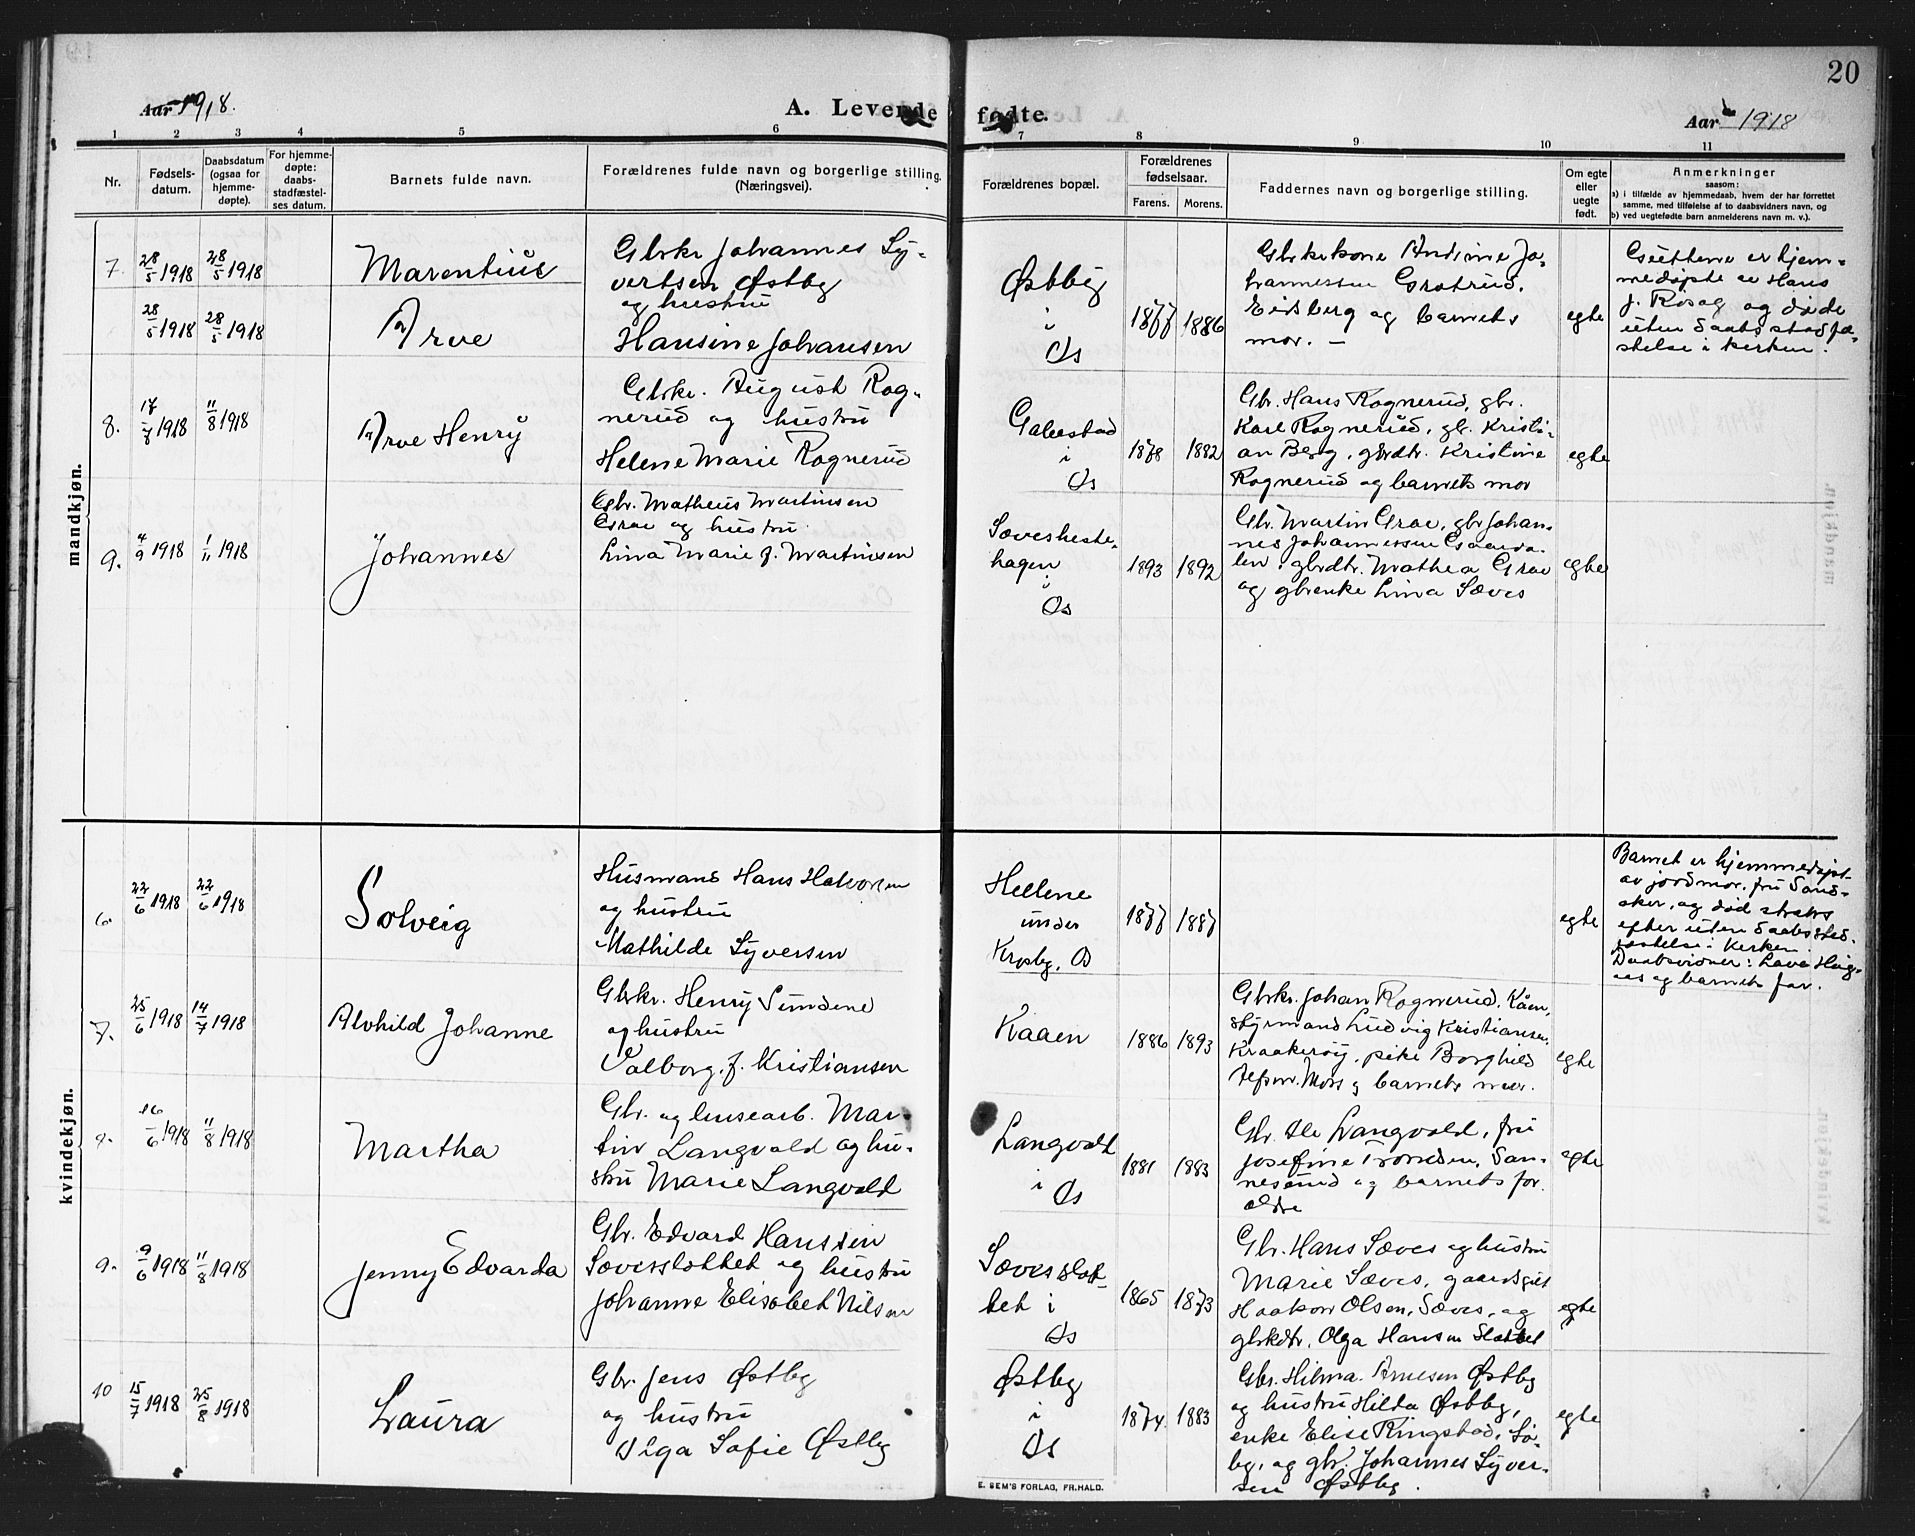 20
Aar 1918.
A. Levende fødte.
Aar 1918
1 2 3 4 5 6 7 8 9 10 11
Nr.
Fødsels-
datum.
Daabsdatum
(ogsaa for
hjemme-
døpte).
For hjemme-
døpte:
daabs-
stadfæstel-
ses datum.
Barnets fulde navn.
Forældrenes fulde navn og borgerlige stilling.
(Næringsvei).
Forældrenes bopæl.
Forældrenes
fødselsaar.
Farens. Morens.
Faddernes navn og borgerlige stilling.
Om egte
eller
uegte
født.
Anmerkninger
saasom:
a) i tilfælde av hjemmedaab, hvem der har forrettet
samme, med tilføielse af to daabsvidners navn, og
b) ved uegtefødte barn anmelderens navn m. v.).
mandkjøn.
7.
28/5 1918
28/5 1918
Marentius
28/5 1918
28/5 1918
Arve
Gbrkr Johannes Sy-
vertsen Østby
og hustru
Hansine Johansen
Østby
i
Os
1877
1886
Gbrkrkone Andrine Jo-
hannessen Gratrud,
Eidsberg og barnets
mor. —
egte
er hjem-
medøpte av Hans
J. Rosag og døde
uten daabsstadfæ-
stelse i kirken.
8.
17/7 1918
11/8 1918
Arve Henry
Gbrkr. August Rog-
nerud og hustru
Helene Marie Rognerud
Galtestad
i
Os
1878
1882
Gbr. Hans Rognerud, gbr.
Karl Rognerud, gb. Kristi-
an Berg, gbrdtr. Kristine
Rognerud og barnets mor
egte
9.
4/9 1918
1/11 1918
Johannes
Gbr. Matheus Martinsen
Grav og hustru
Lina Marie f. Martinsen
Sævesheste-
hagen
i
Os
1893
1892
Gbr. Martin Grav, gbr Johan-
nes Johannessen Gaarda-
len, gbrdtr. Mathea Grav
og gbrenke Lina Sæves
egte
kvindekjøn.
6.
22/6 1918
22/6 1918
Solveig
Husmand Hans Halvorsen
og hustru
Mathilde Syversen
Hellene
under
Krosby, Os
1877
1887
egte
Barnet er hjemmedøpt
av jordmor, fru Sand-
aker, og død straks
efter uten daabsstad-
fæstelse i kirken.
Daabsvidner:
og barnets far.
7.
25/6 1918
14/7 1918
Alvhild Johanne
Gbrkr. Henry Sundene
og hustru
Valborg, f. Kristiansen
Kaaen
1886
1893
Gbrkr. Johan Rognerud, Kåen,
styrmand Ludvig Kristiansen,
Kraakerøy, pike Borghild
Moss og barnets mor.
egte
8.
16/6 1918
11/8 1918
Martha
Gbr. og husearb. Mar-
tin Langvald og hu-
stru Marie Langvald
Langvald
i
Os
1881
1883
Gbr. Ole Langvald, fru
Josefine Tronsen, San-
nesund og barnets for-
ældre
egte
9.
9/6 1918
11/8 1918
Jenny Edvarda
Gbr. Edvard Hanssen
Sævesslottet og hustru
Johanne Elisabet Nilsen
Sævesslot-
tet i
Os
1865
1873
Gbr. Hans Sæves og hustru
Marie Sæves, gaardsgut
Haakon Olsen, Sæves, og
gbrkdtr. Olga Hansen Slottet
egte
10
15/7 1918
25/8 1918
Laura
Gbr. Jens Østby
og hustru
Olga Sofie Østby
Østby
i
Os
1874.
1883
Gbr. Hilmar Arnesen Østby
og hustru Hilda Østby,
enke Elise Ringstad, Lø-
by, og gbr. Johannes Syver-
sen Østby.
egte
E. SEM'S FORLAG, FR.HALD.